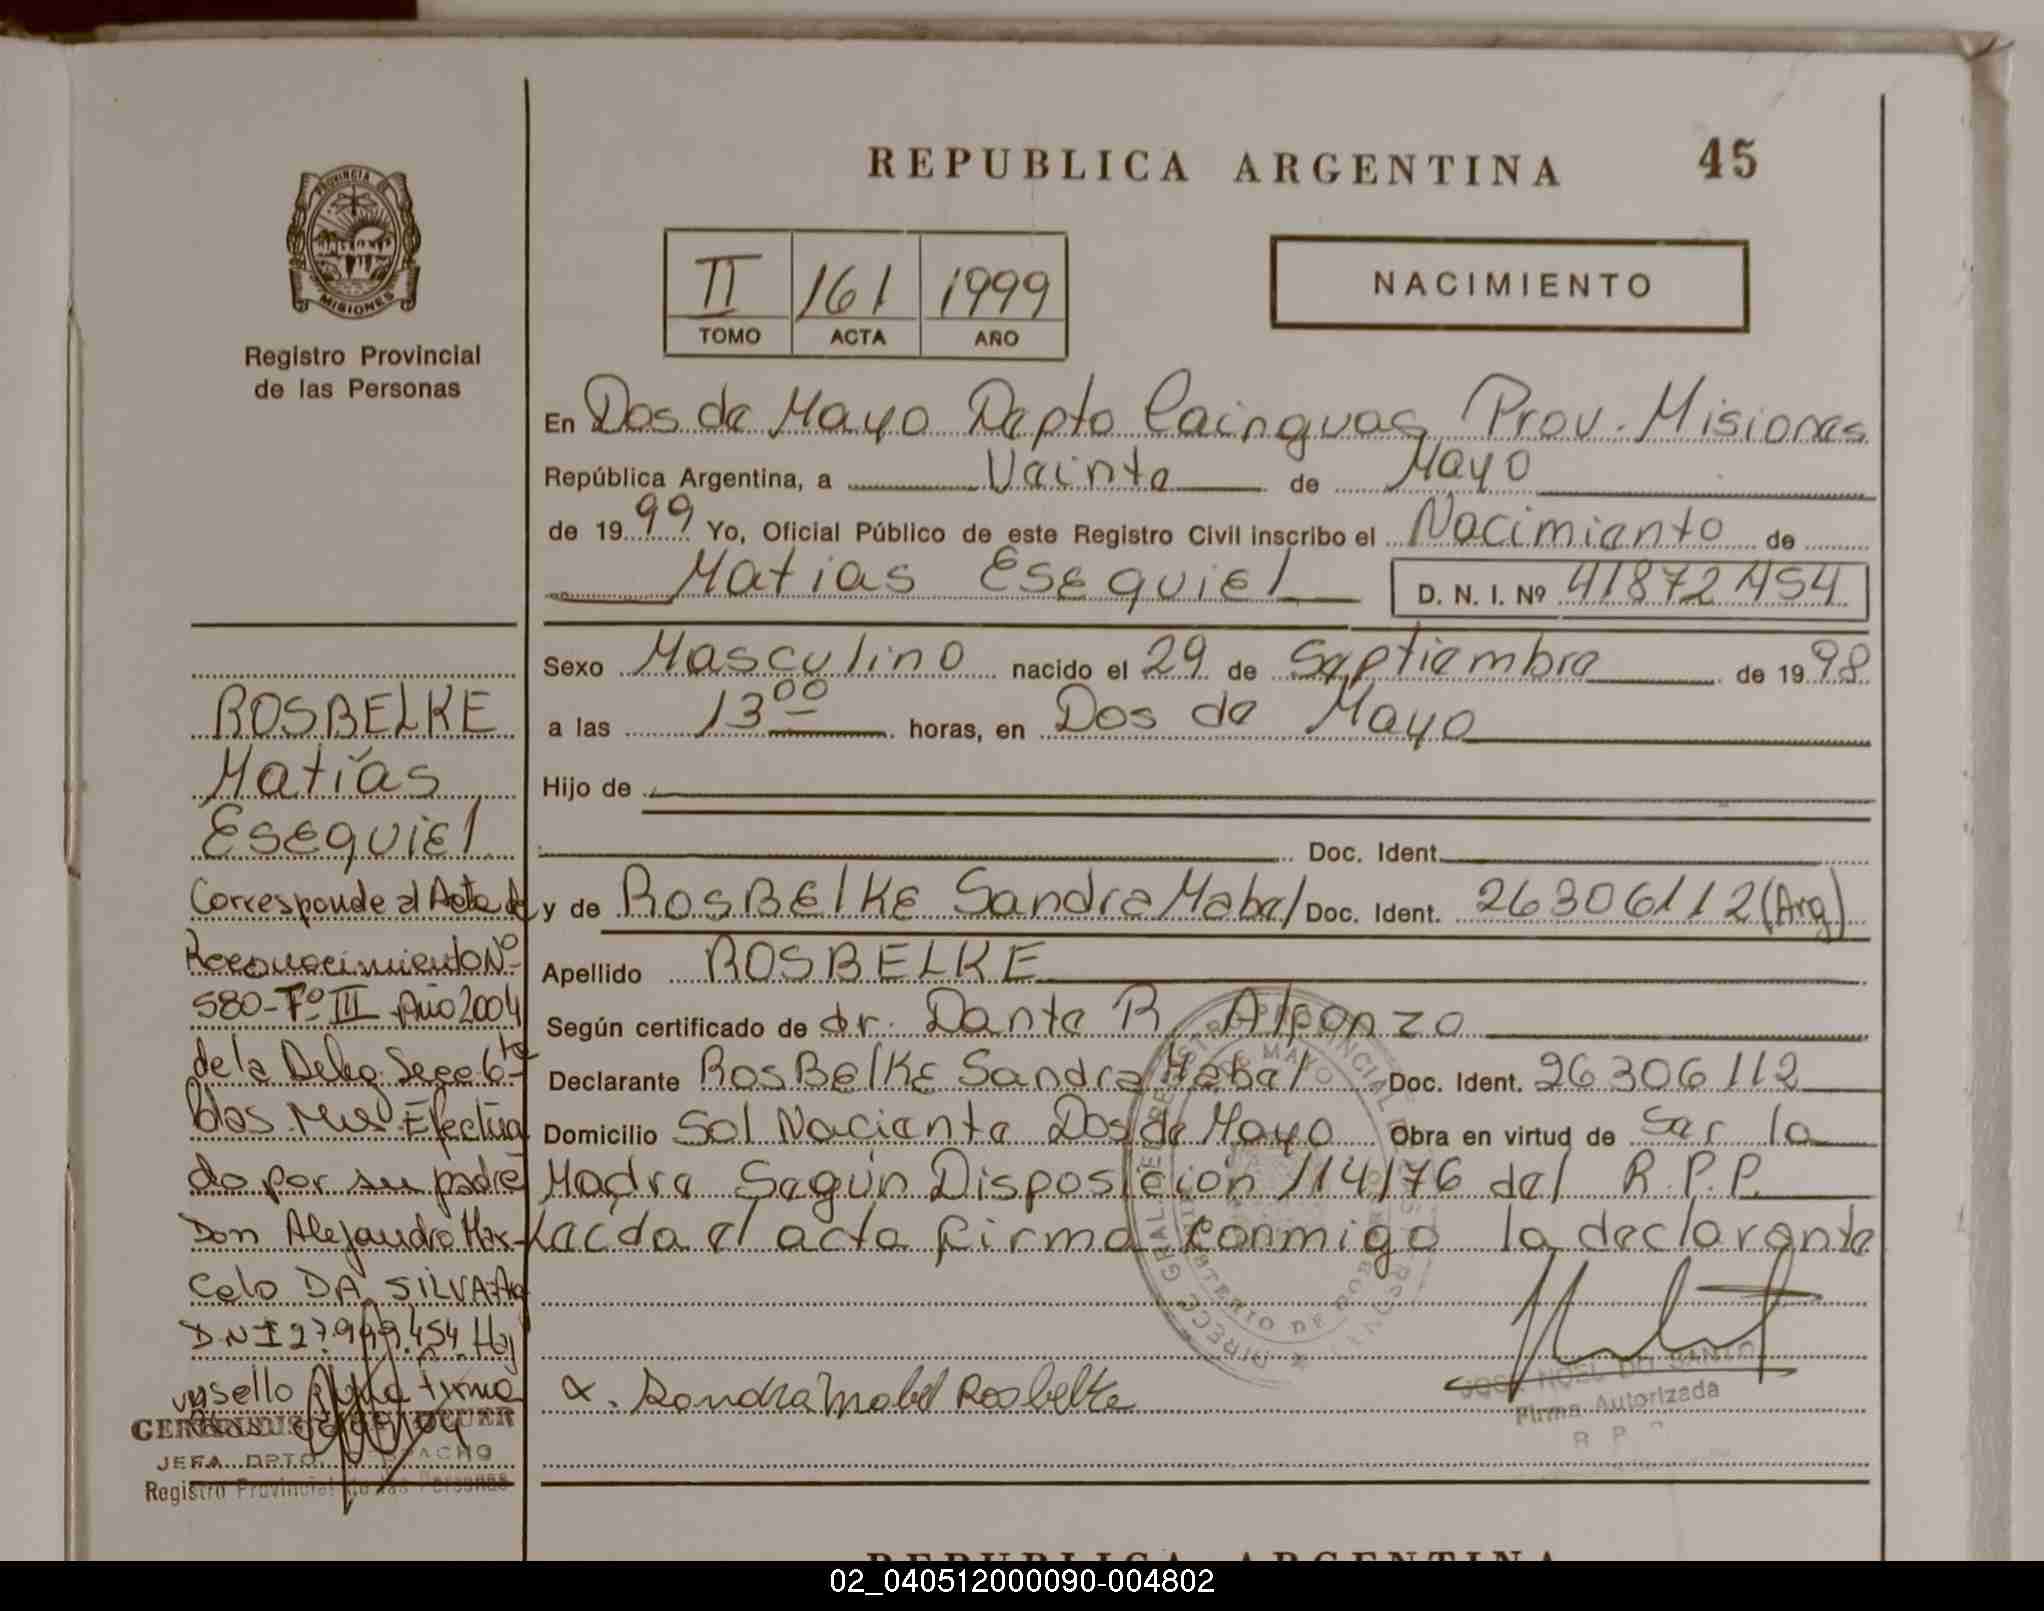 REPUBLICA ARGENTINA 45
PROVINCIA DE
MISIONES
Registro Provincial
de las Personas
II 161 1999
TOMO ACTA AÑO
NACIMIENTO
En Dos de Mayo Depto Cainguas Prov. Misiones
República Argentina, a Veinte de Mayo
de 1999 Yo, Oficial Público de este Registro Civil inscribo el Nacimiento de
Matias Esequiel D. N. I. Nº 41872454
Sexo Masculino nacido el 29 de Septiembre de 1998
a las 13 00 horas, en Dos de Mayo
Hijo de
Doc. Ident.
y de RosBelKe Sandra Mabel Doc. Ident. 26306112 (Arg)
Apellido ROSBELKE
Según certificado de dr. Dante R. Alponzo
Declarante RosBelKe Sandra Mabel Doc. Ident. 26306112
Domicilio Sol Naciente Dos de Mayo Obra en virtud de Ser la
Madre Según Disposición 114/76 del R.P.P.
Leída el acta firma conmigo la declarante
x. Sandra Mabel Rosbelke
Firma Autorizada
ROSBELKE
Matías
Esequiel
Corresponde al Acta de
Reconocimiento Nº
580-Tº III Año 2004
de la Deleg. Secc 6ta
Pdas Mnes Efectua
do por su padre
Don Alejandro Mar-
celo DA SILVA-Arg
DNI 27.999.454. Hay
un sello firma
JEFA DPTO. DESPACHO
Registro Provincial de las Personas
REPUBLICA ARGENTINA
02_040512000090-004802